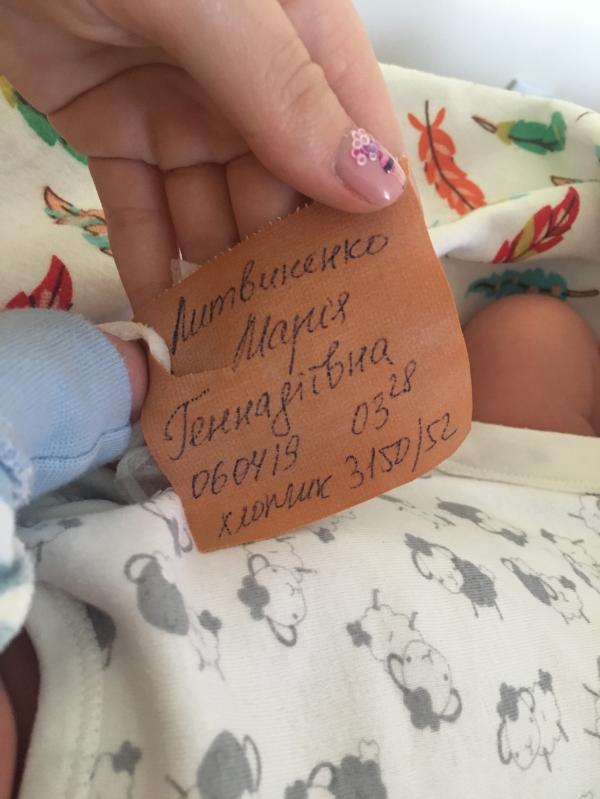 Литвиненко
Марія
Геннадіївна
060419 03 28
хлопчик 3150/52